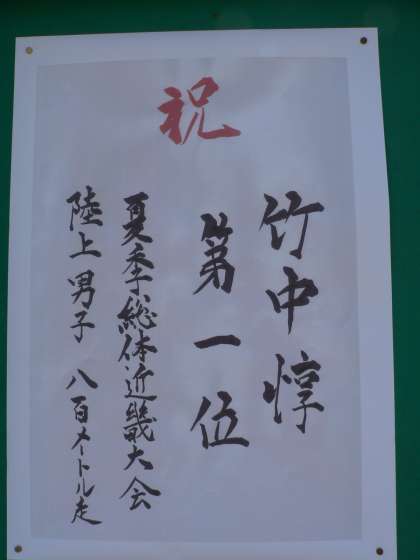 祝
竹中惇
第一位
夏季総体近畿大会
陸上男子八百メートル走